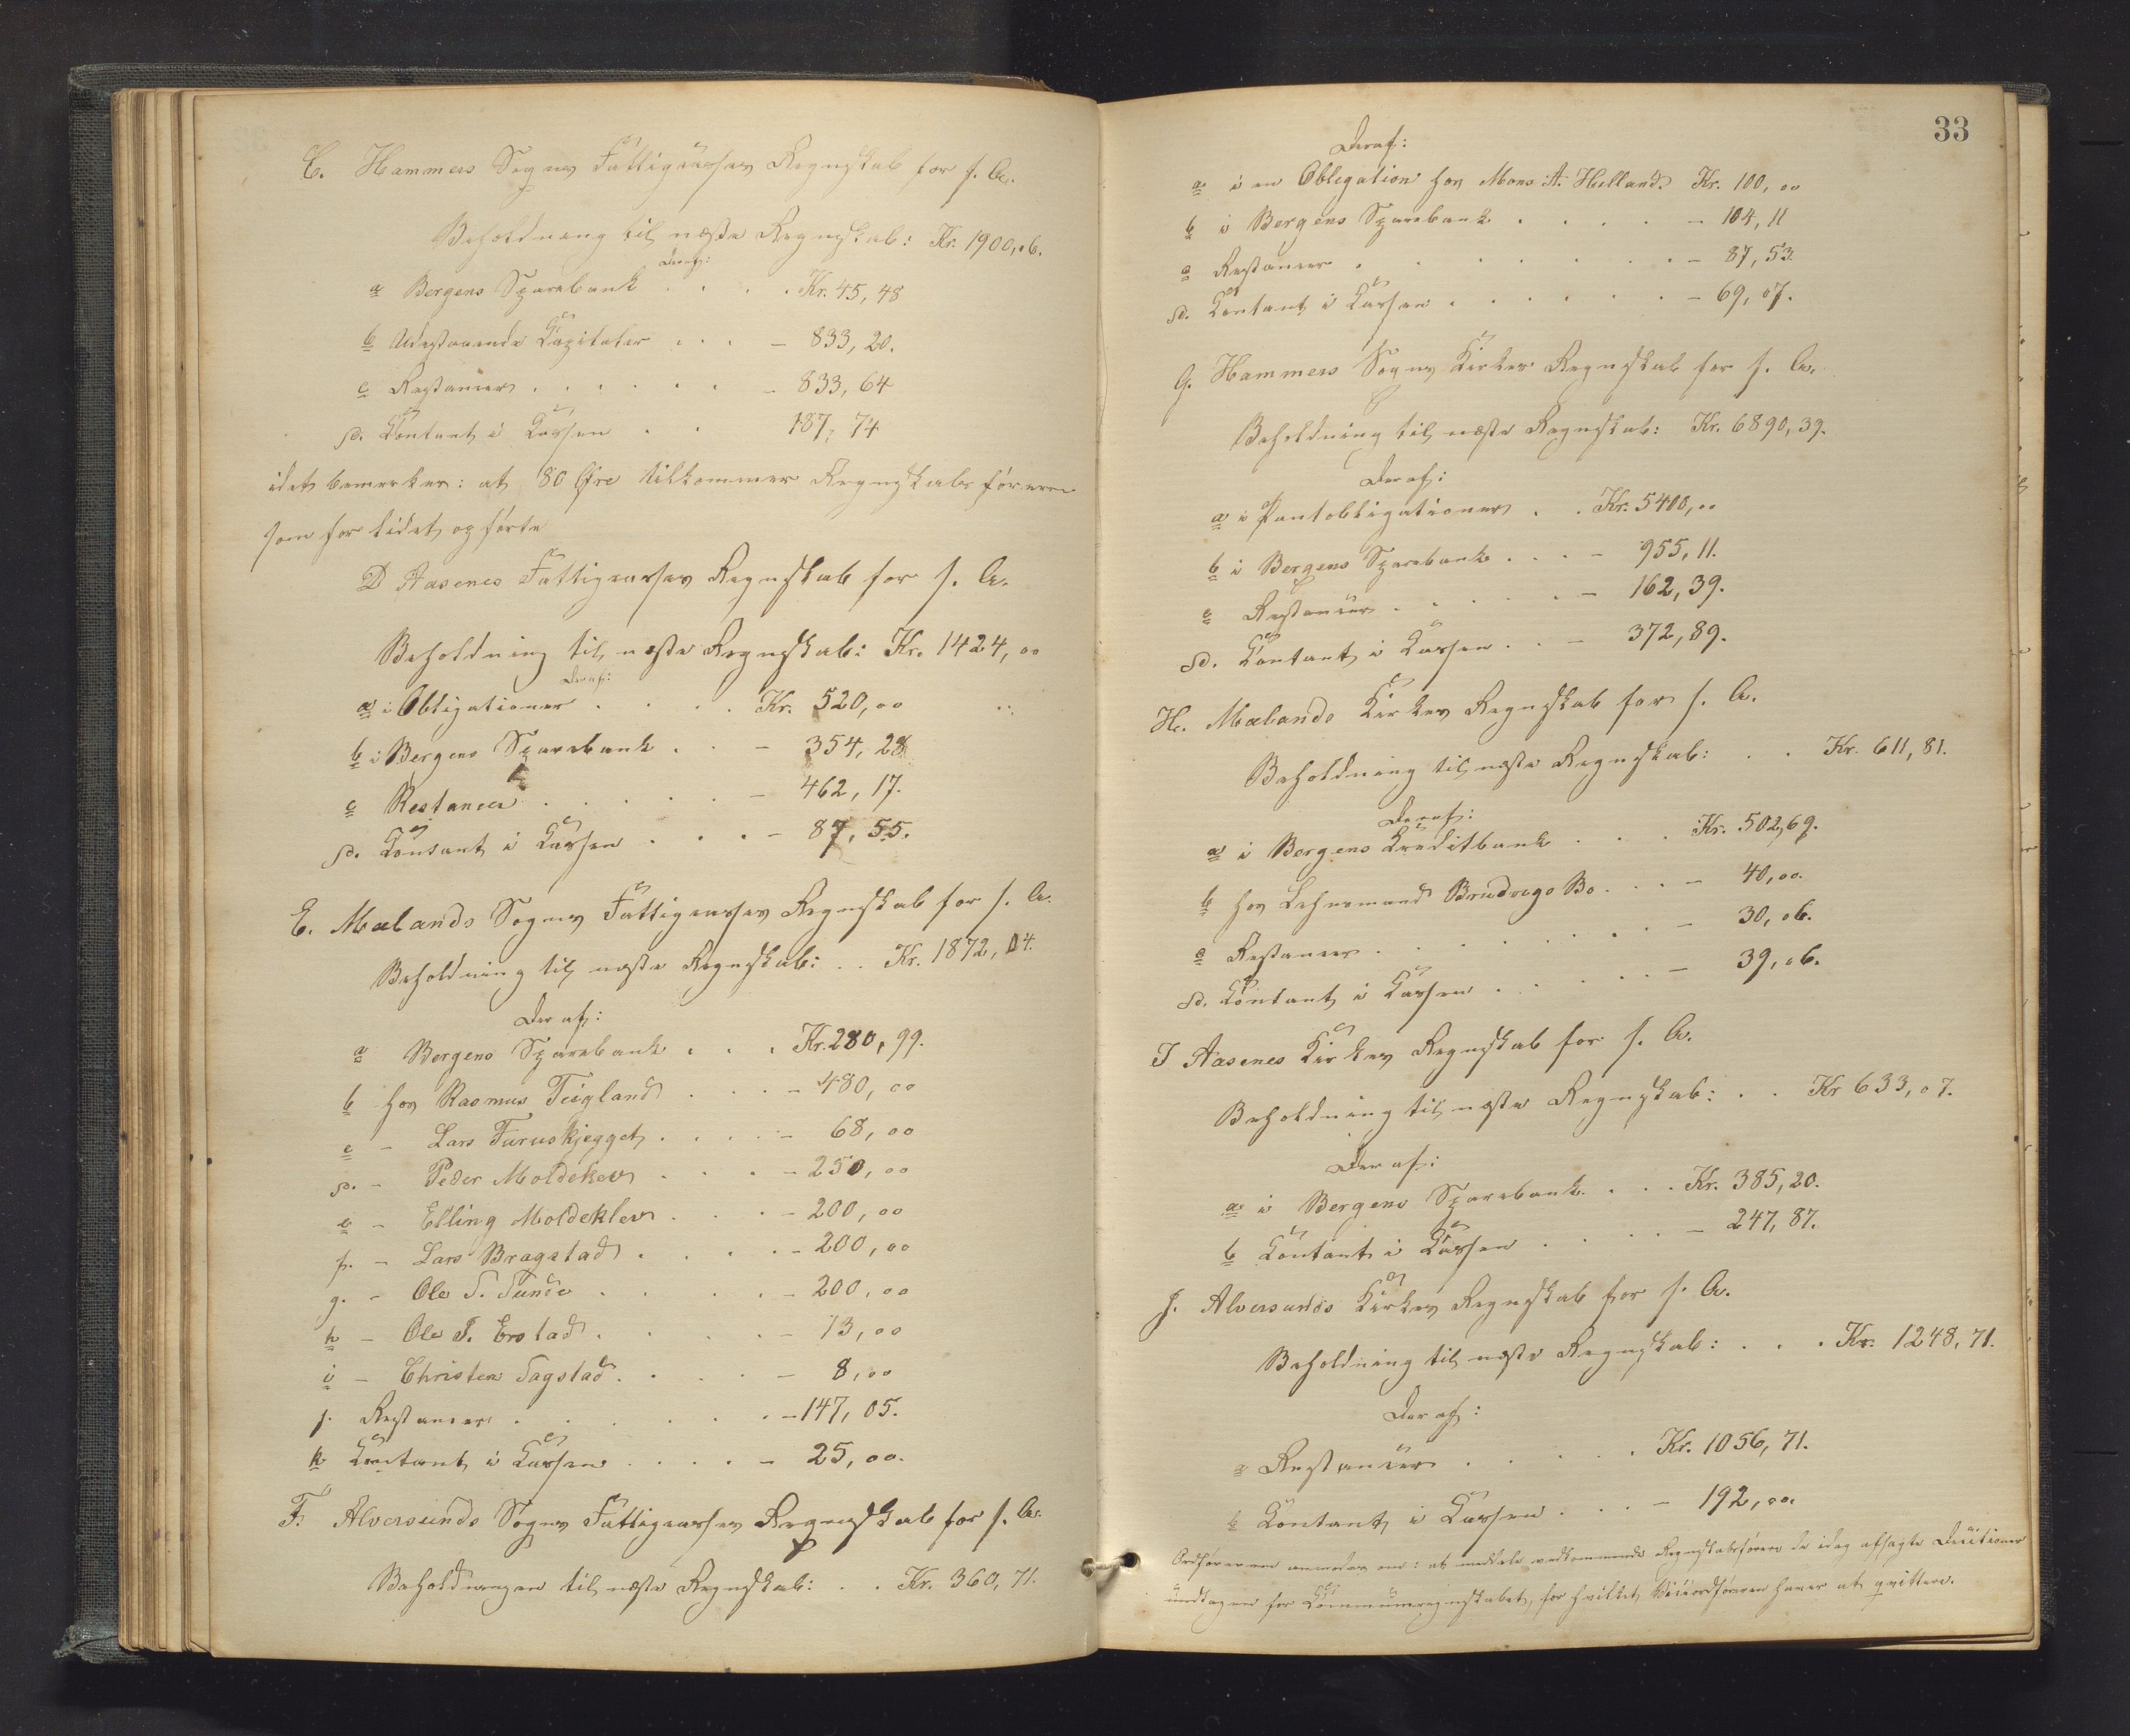 C. Hammers Sogns Fattigcasses Regnskab for s. A.
Beholdning til næste Regnskab: Kr. 1900,06.
Deraf:
a Bergens Sparebank . . . . Kr. 45, 48
b Udestaaende Capitaler . . . - 833, 20.
c Restancer . . . . . . - 833, 64
d. Contant i Cassen . . 187, 74
idet bemerkes: at 80 Øre tilkommer Regnskabsføreren
som for lidet opførte
D Aasenes Fattigcasses Regnskab for s. A.
Beholdning til næste Regnskab: Kr. 1424,00
Deraf:
a i Obligationer . . . . . Kr. 520,00
b i Bergens Sparebank . . - 354, 28
c Restancer . . . . . - 462, 17.
d. Contant i Cassen . . . - 87, 55.
E. Mælands Sogns Fattigcasses Regnskab for s. A.
Beholdning til næste Regnskab: . . Kr. 1872, 04.
Deraf:
a Bergens Sparebank . . . Kr. 280, 99.
b hos Rasmus Teigland . . . - 480, 00
c - Lars Furuskjegget . . . . - 68, 00
d. - Peder Moldeklev . . . - 250, 00
e - Elling Moldeklev . . . - 200, 00
f. - Lars Bragstad . . . . - 200, 00
g. - Ole T. Tunde . . . . - 200, 00
h - Ole T. Erstad . . . . - 13, 00
i - Christen Tagstad . . . . - 8,00
j. Restancer . . . . . . - 147, 05.
k Contant i Cassen . . . . - 25, 00.
F. Alversunds Sogns Fattigcasses Regnskab for s. A.
Beholdningen til næste Regnskab: . . Kr. 360, 71.
33
Deraf:
a i en Obligation hos Mons A. Helland. Kr. 100, 00
b i Bergens Sparebank . . . . . - 104, 11
c Restancer . . . . . . . - 87, 53.
d. Contant i Cassen . . . . . . - 69, 07.
G. Hammers Sogns Kirkes Regnskab for s. A.
Beholdning til næste Regnskab: Kr. 6890, 39.
Deraf:
a i Pantobligationer . . Kr. 5400,00
b i Bergens Sparebank . . . - 955, 11.
c Restancer . . . . . - 162, 39.
d. Contant i Cassen . . - 372, 89.
H. Mælands Kirkes Regnskab for s. A.
Beholdning til næste Regnskab: . . Kr. 611, 81.
Deraf:
a i Bergens Kreditbank . . . Kr. 502,69.
b hos Lehnsmand Brudvigs Bo . . . - 40,00.
c Restancer . . . . . . . - 30, 06.
d. Contant i Cassen . . . . . - 39, 06.
I Aasenes Kirkes Regnskab for s. A.
Beholdning til næste Regnskab: . . Kr 633, 07.
Deraf:
a i Bergens Sparebank . . . Kr. 385, 20.
b Contant i Cassen . . . . - 247, 87.
J. Alversunds Kirkes Regnskab for s. A.
Beholdning til næste Regnskab: . . . Kr. 1248, 71.
Deraf:
a Restancer . . . . . Kr. 1056, 71.
b Contant i Cassen . . . - 192, 00.
Ordføreren anmodes om: at meddele vedkommende Regnskabsførere de idag afsagte Decitioner
undtagen for Communeregnskabet, for hvilket Viceordføreren haver at qvittere.